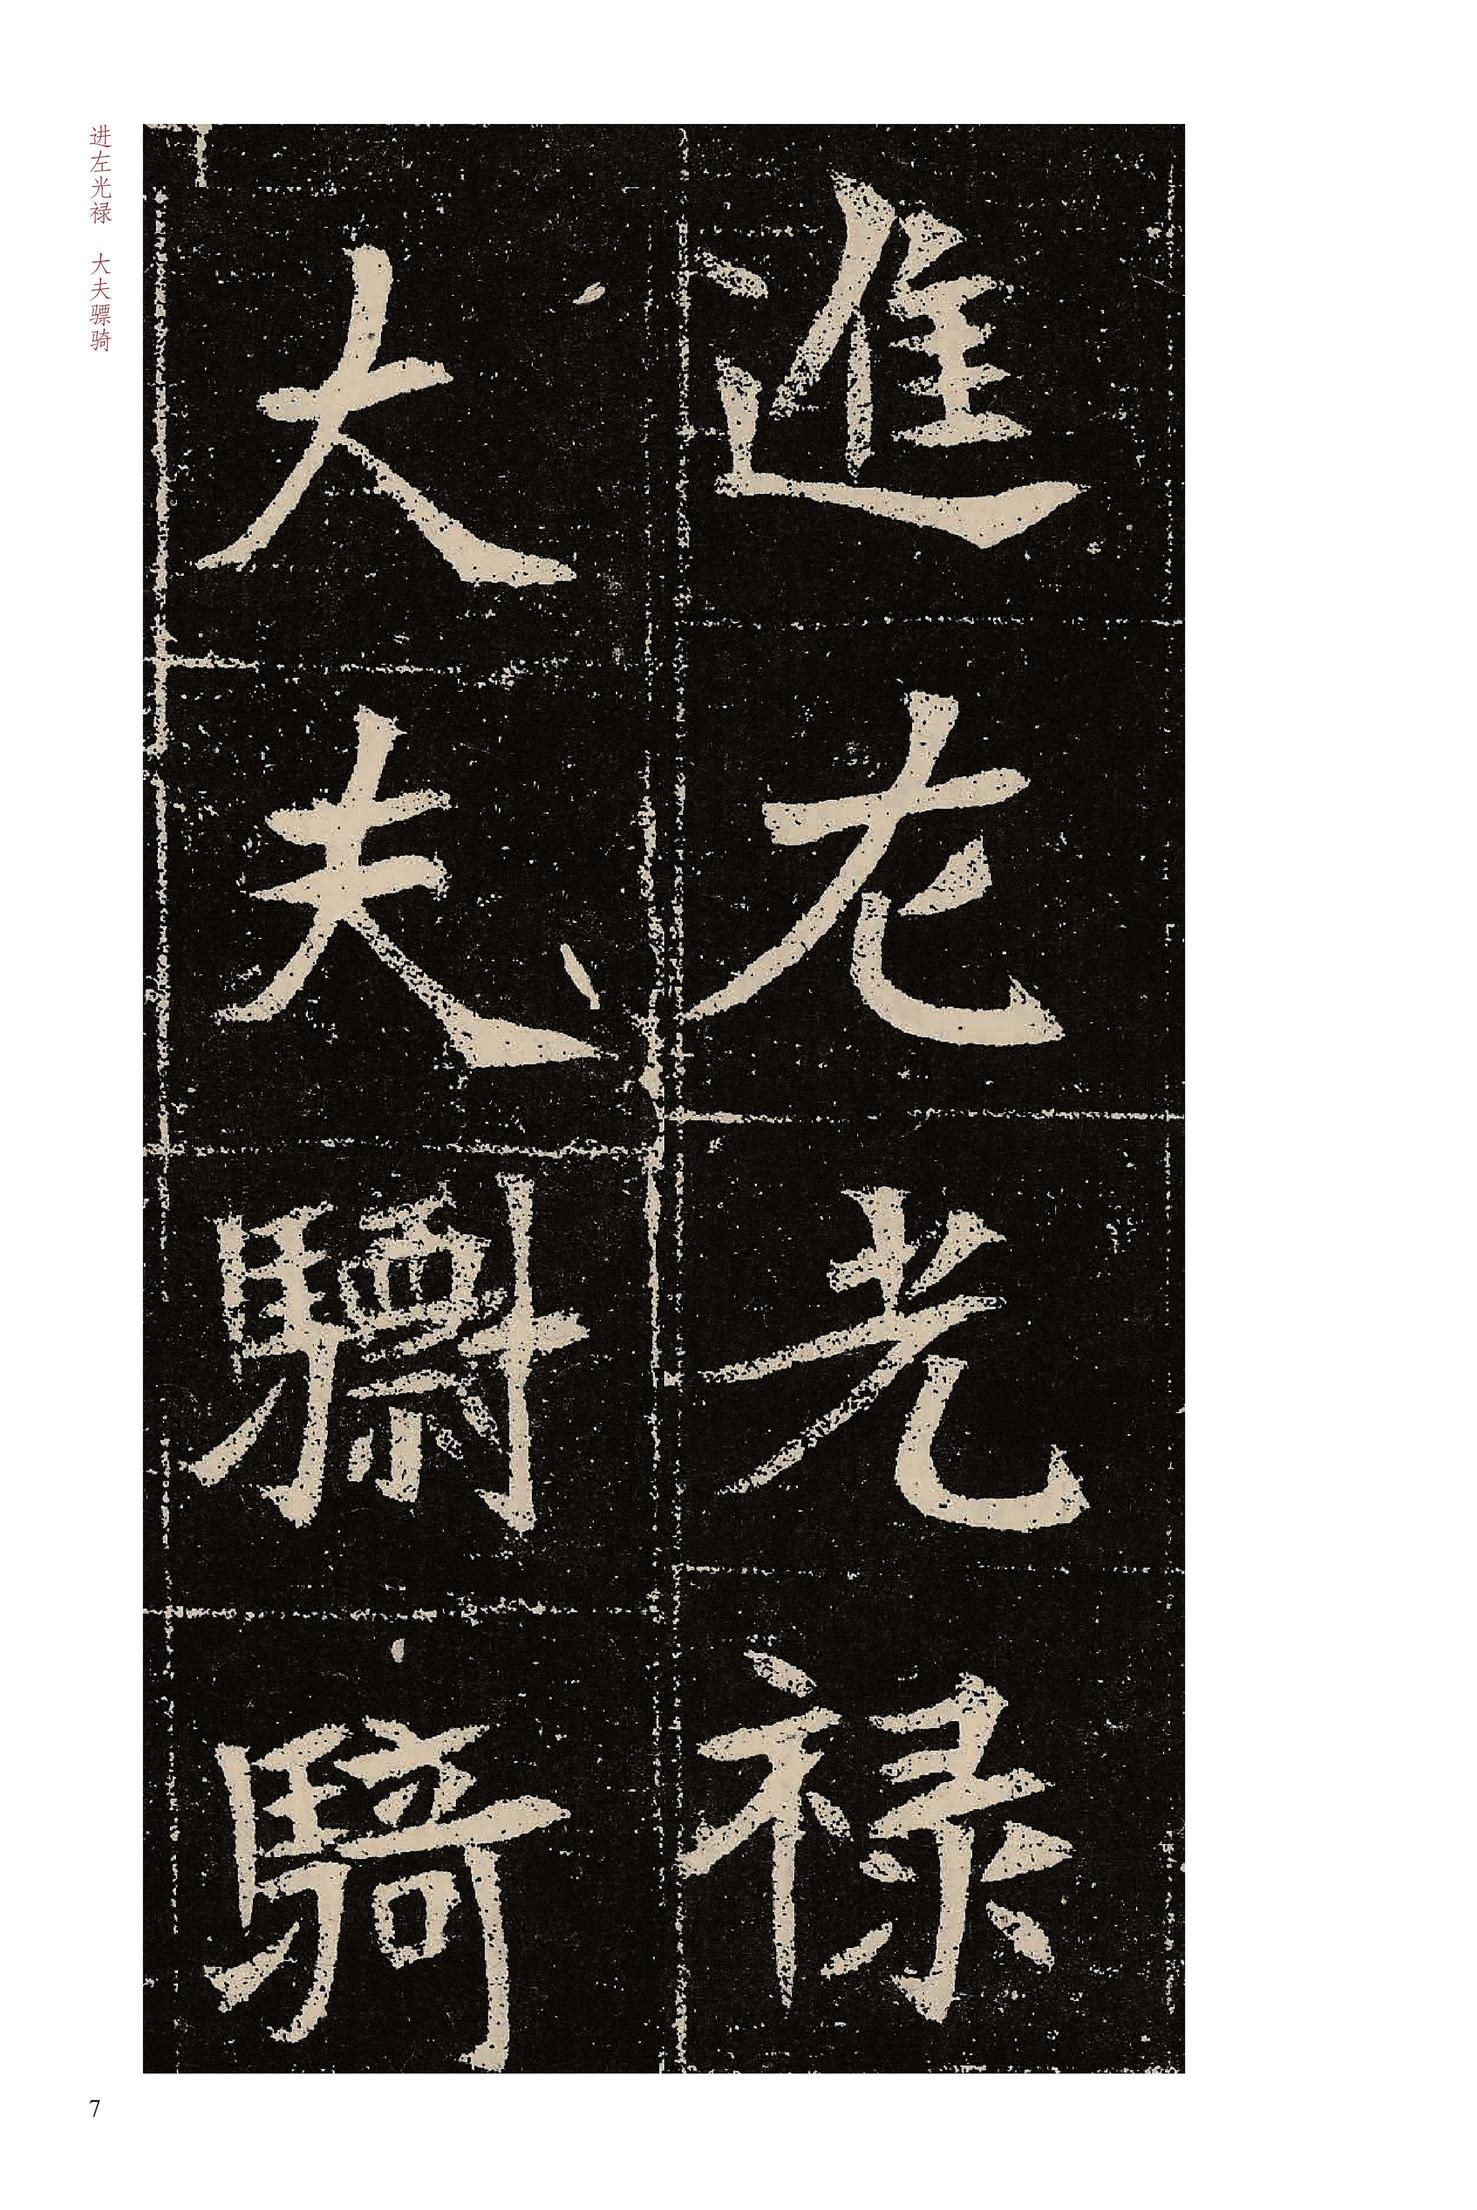 進左光禄
大夫驃騎
进左光禄　大夫骠骑
7